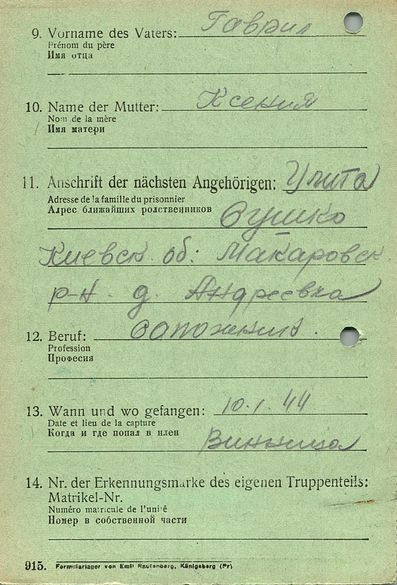 9. Vorname des Vaters: Гаврил
Prénom du père
Имя отца
10. Name der Mutter: Ксения
Nom de la mère
Имя матери
11. Anschrift der nächsten Angehörigen: Улита
Adresse de la famille du prisonnier
Адрес ближайших родственников
Сушко
Киевск. об. Макаровск.
р-н. д. Андреевка
12. Beruf: сапожник.
Profession
Професия
13. Wann und wo gefangen: 10.1.44
Date et lieu de la capture
Когда и где попал в плен
Винница
14. Nr. der Erkennungsmarke des eigenen Truppenteils:
Matrikel-Nr.
Numéro matricule de l'unité
Номер в собственной части
915. Formularlager von Emil Rautenberg, Königsberg (Pr)